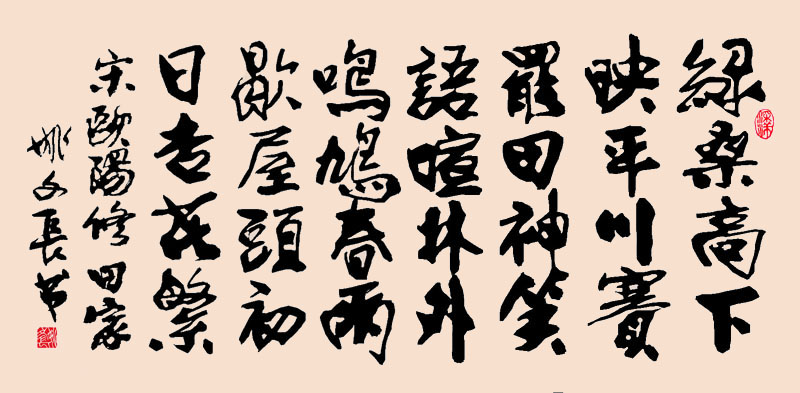 緑桑高下
映平川賽
罷田神笑
語喧林外
鳴鳩春雨
歇屋頭初
日杏花繁
宋歐陽修田家
姚文長书